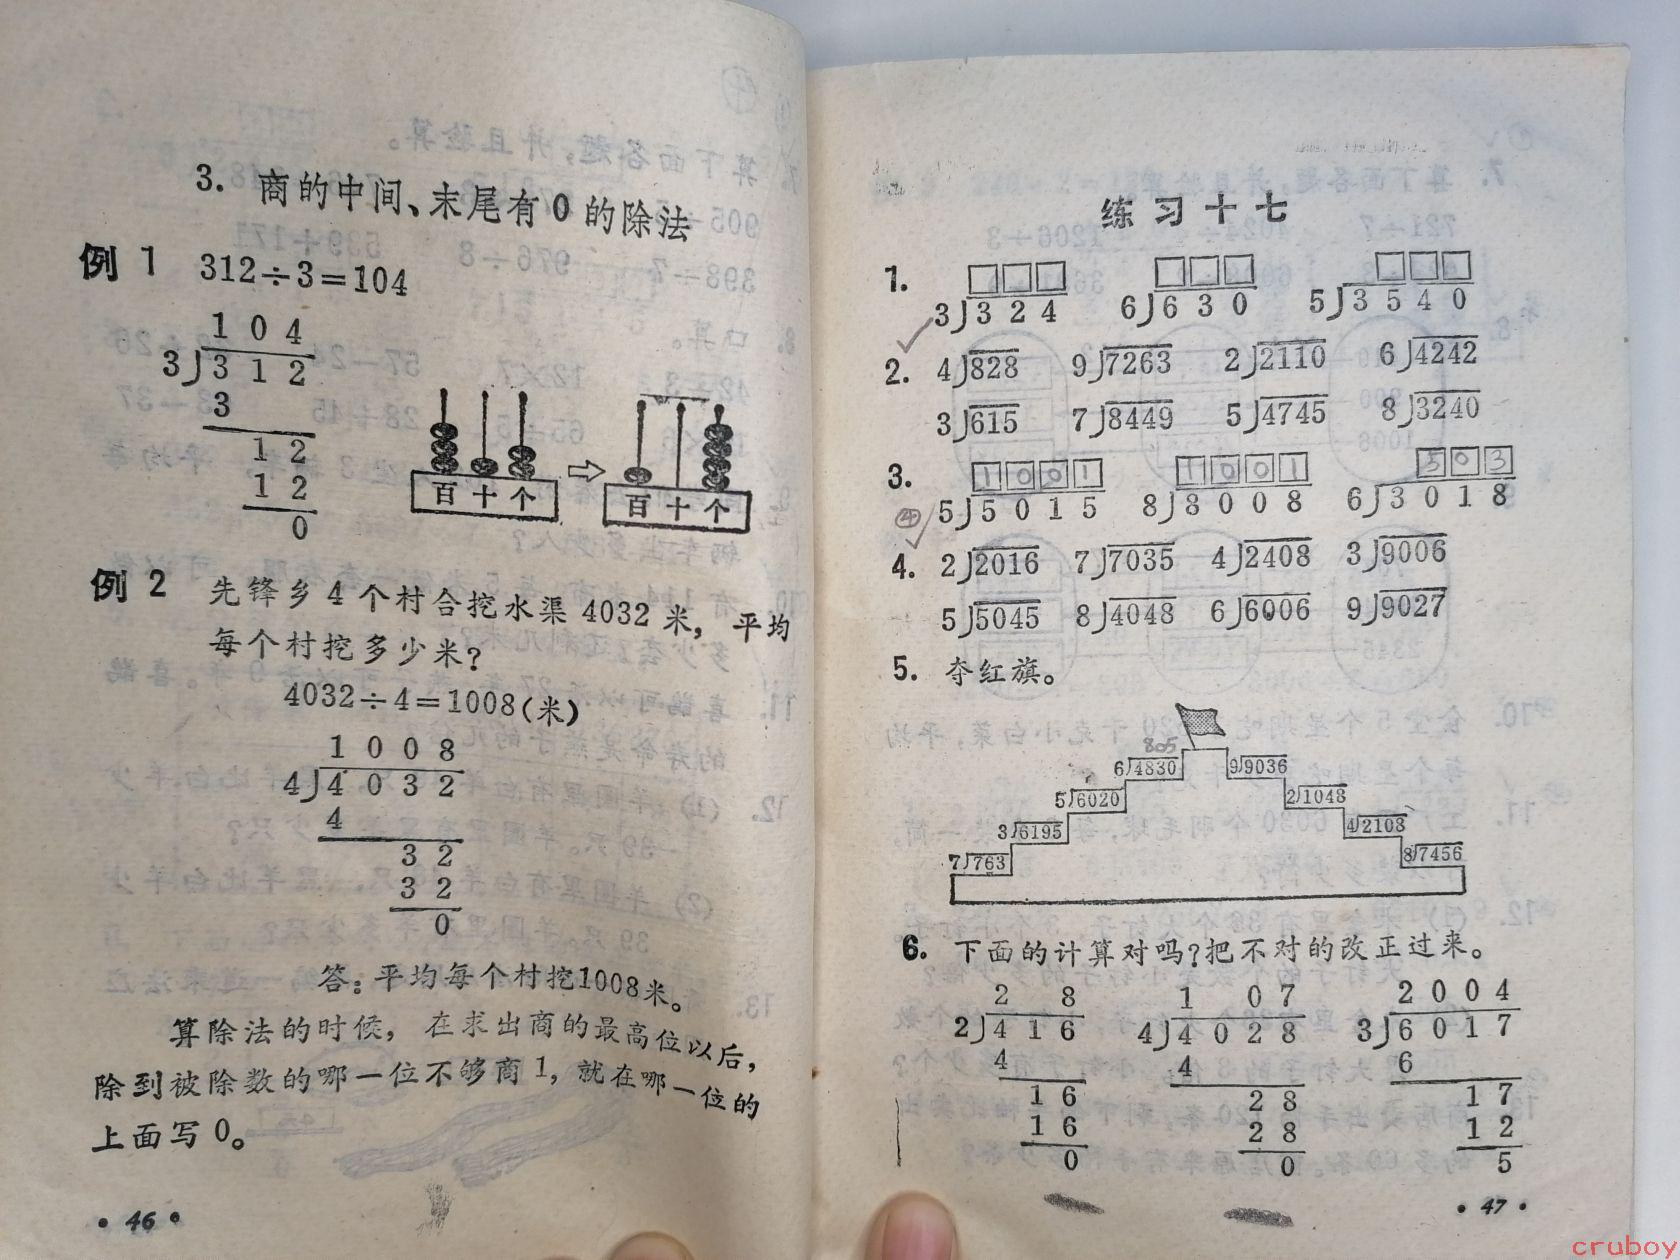 3. 商的中间、末尾有0的除法
例 1 312÷3=104
1 0 4
3)3 1 2
3
1 2
1 2
0
百 十 个
百 十 个
例 2 先锋乡4个村合挖水渠4032米，平均
每个村挖多少米？
4032÷4=1008(米)
1 0 0 8
4)4 0 3 2
4
3 2
3 2
0
答：平均每个村挖1008米。
算除法的时候，在求出商的最高位以后，
除到被除数的哪一位不够商1，就在哪一位的
上面写0。
• 46 •
练习十七
1.
3)3 2 4 6)6 3 0 5)3 5 4 0
2. 4)828 9)7263 2)2110 6)4242
3)615 7)8449 5)4745 8)3240
3. 1 0 0 1 1 0 0 1 5 0 3
5)5 0 1 5 8)8 0 0 8 6)3 0 1 8
④
4. 2)2016 7)7035 4)2408 3)9006
5)5045 8)4048 6)6006 9)9027
5. 夺红旗。
805
6)4830 9)9036
5)6020 2)1048
3)6195 4)2108
7)763 8)7456
6. 下面的计算对吗？把不对的改正过来。
2 8 1 0 7 2 0 0 4
2)4 1 6 4)4 0 2 8 3)6 0 1 7
4 4 6
1 6 2 8 1 7
1 6 2 8 1 2
0 0 5
• 47 •
cruboy